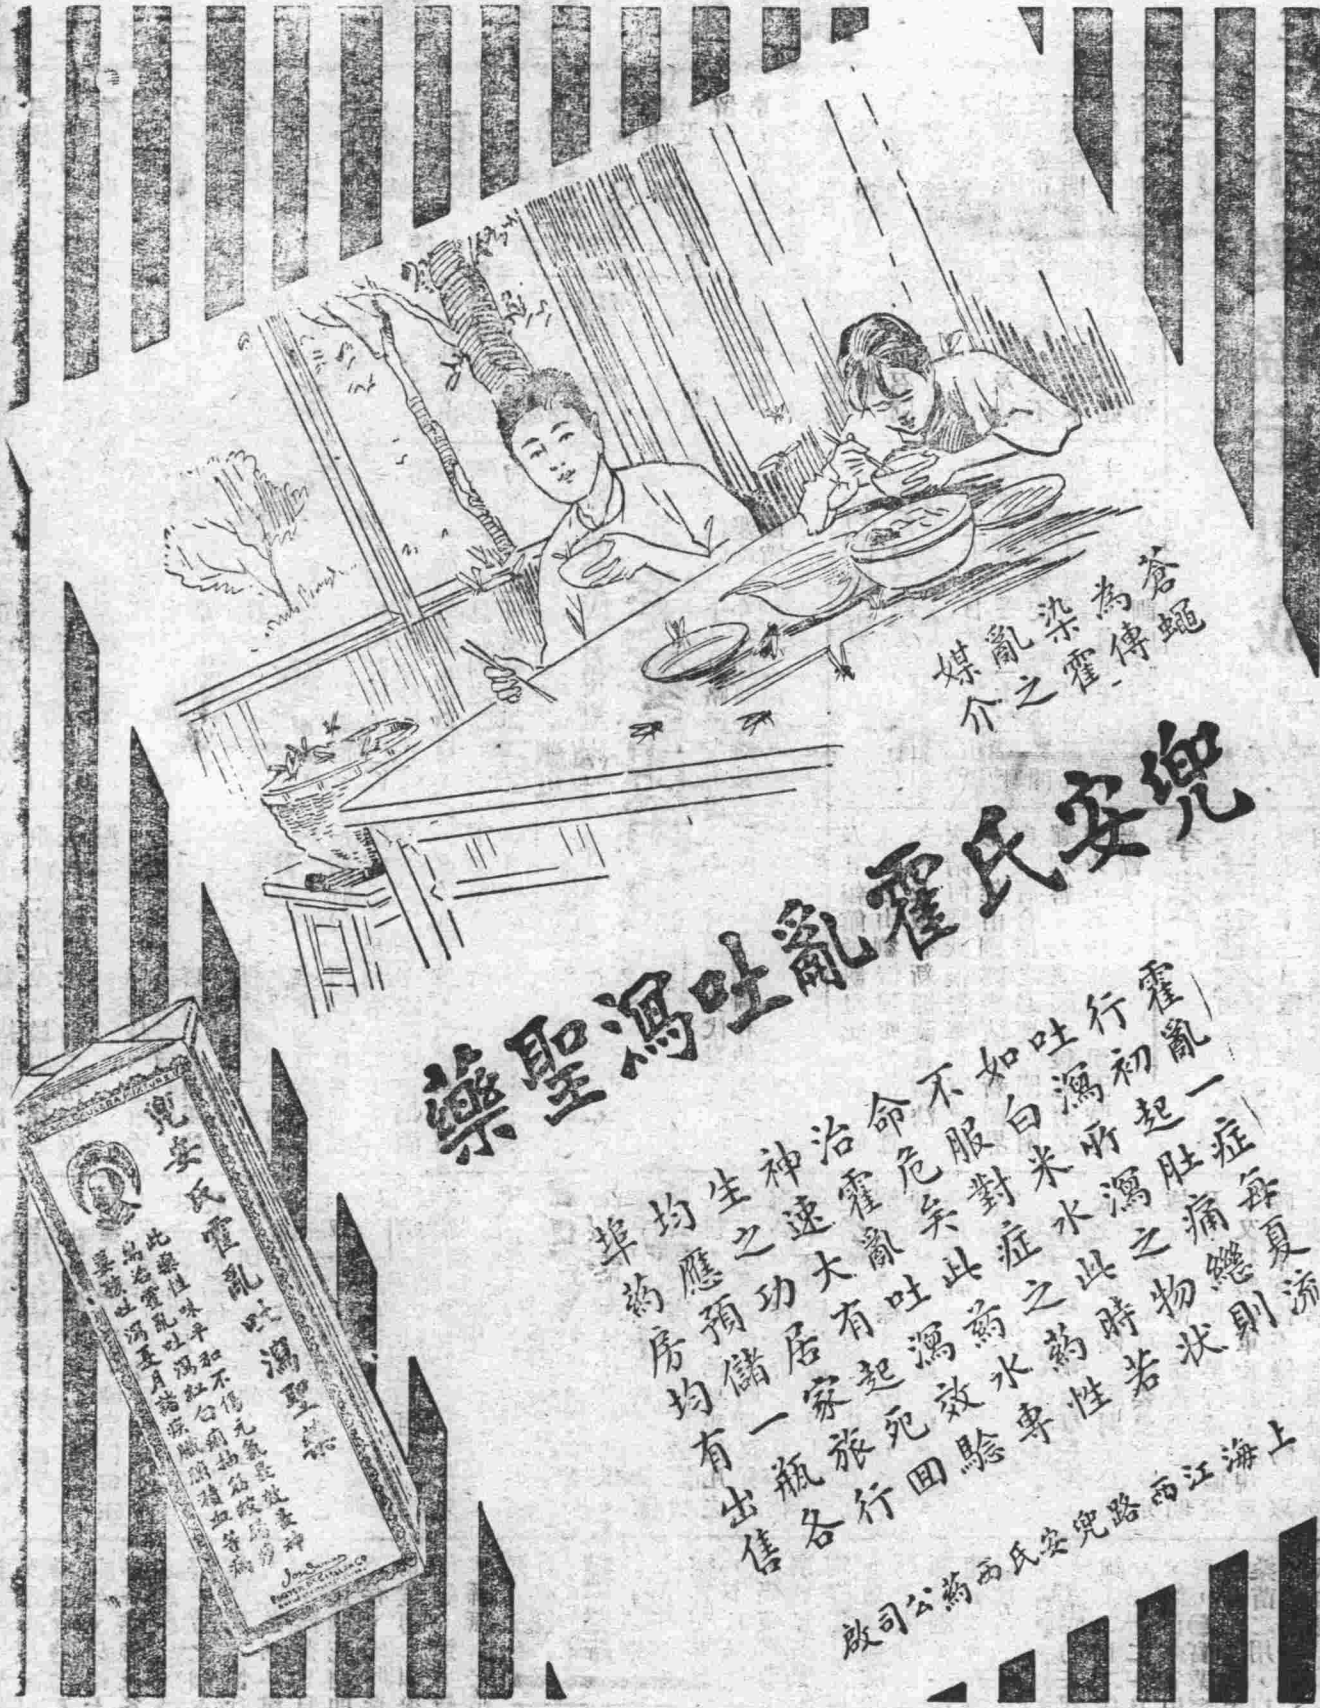 蒼蠅
為傳
染霍
亂之
媒介
兜安氏霍亂吐瀉聖藥
霍亂一症每夏流
行初起肚痛繼則
吐瀉所瀉之物狀
如白米水此時若
不服對症之藥性
命危矣此藥水專
治霍亂吐瀉效驗
神速大有起死回
生之功居家旅行
均應預儲一瓶各
埠葯房均有出售
上海江西路兜安氏西葯公司啟
兜安氏霍亂吐瀉聖藥
此藥性味平和不傷元氣
為治霍亂吐瀉紅白痢抽筋
嬰孩吐瀉夏月諸疾